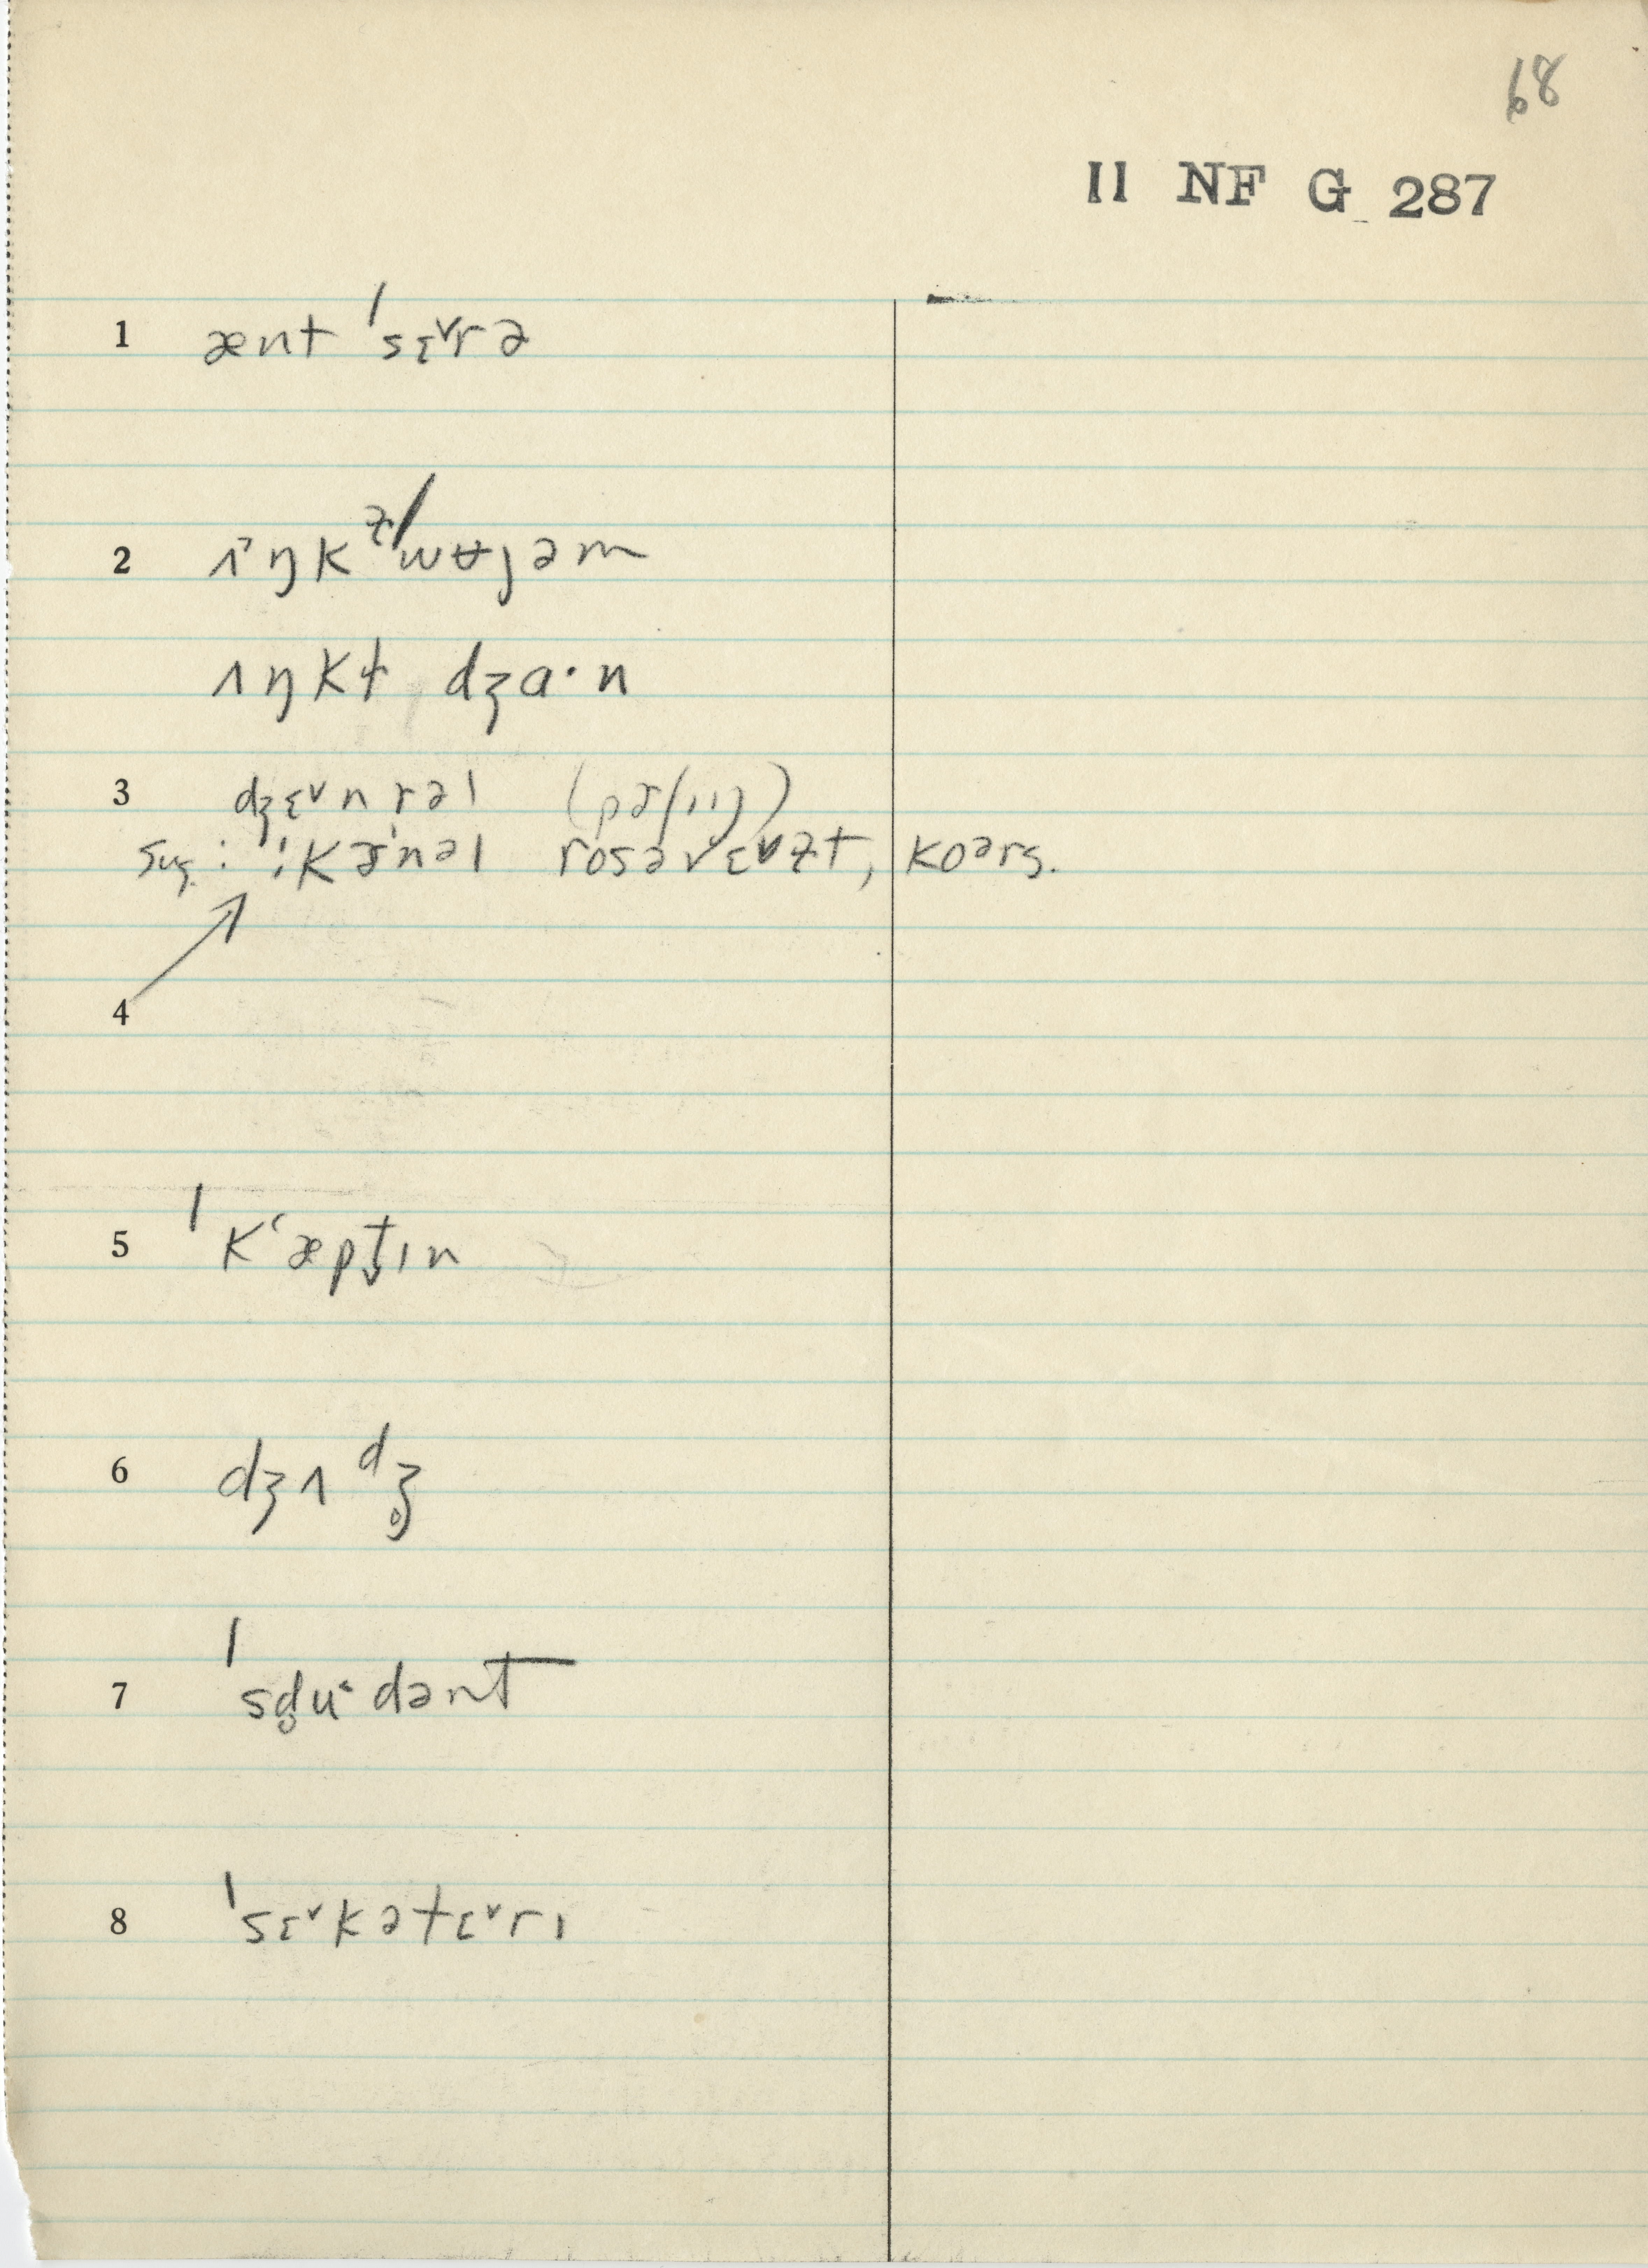 68
II NF G 287
1 ænt ˈsɛ˅rə
2 ʌ˃ŋkɫ ˈwʉjəm
ʌŋkɫ dʒɑ·n
3 dʒɛ˅nrəl
sug.: ˈkɚnəl rosəvɛ˅ɫt, koərs.
4
5 ˈkʻæpt̬ɪn
6 dʒʌdʒ̥
7 ˈsd̥u˂dənt
8 ˈsɛ˅kətɛ˅rɪ